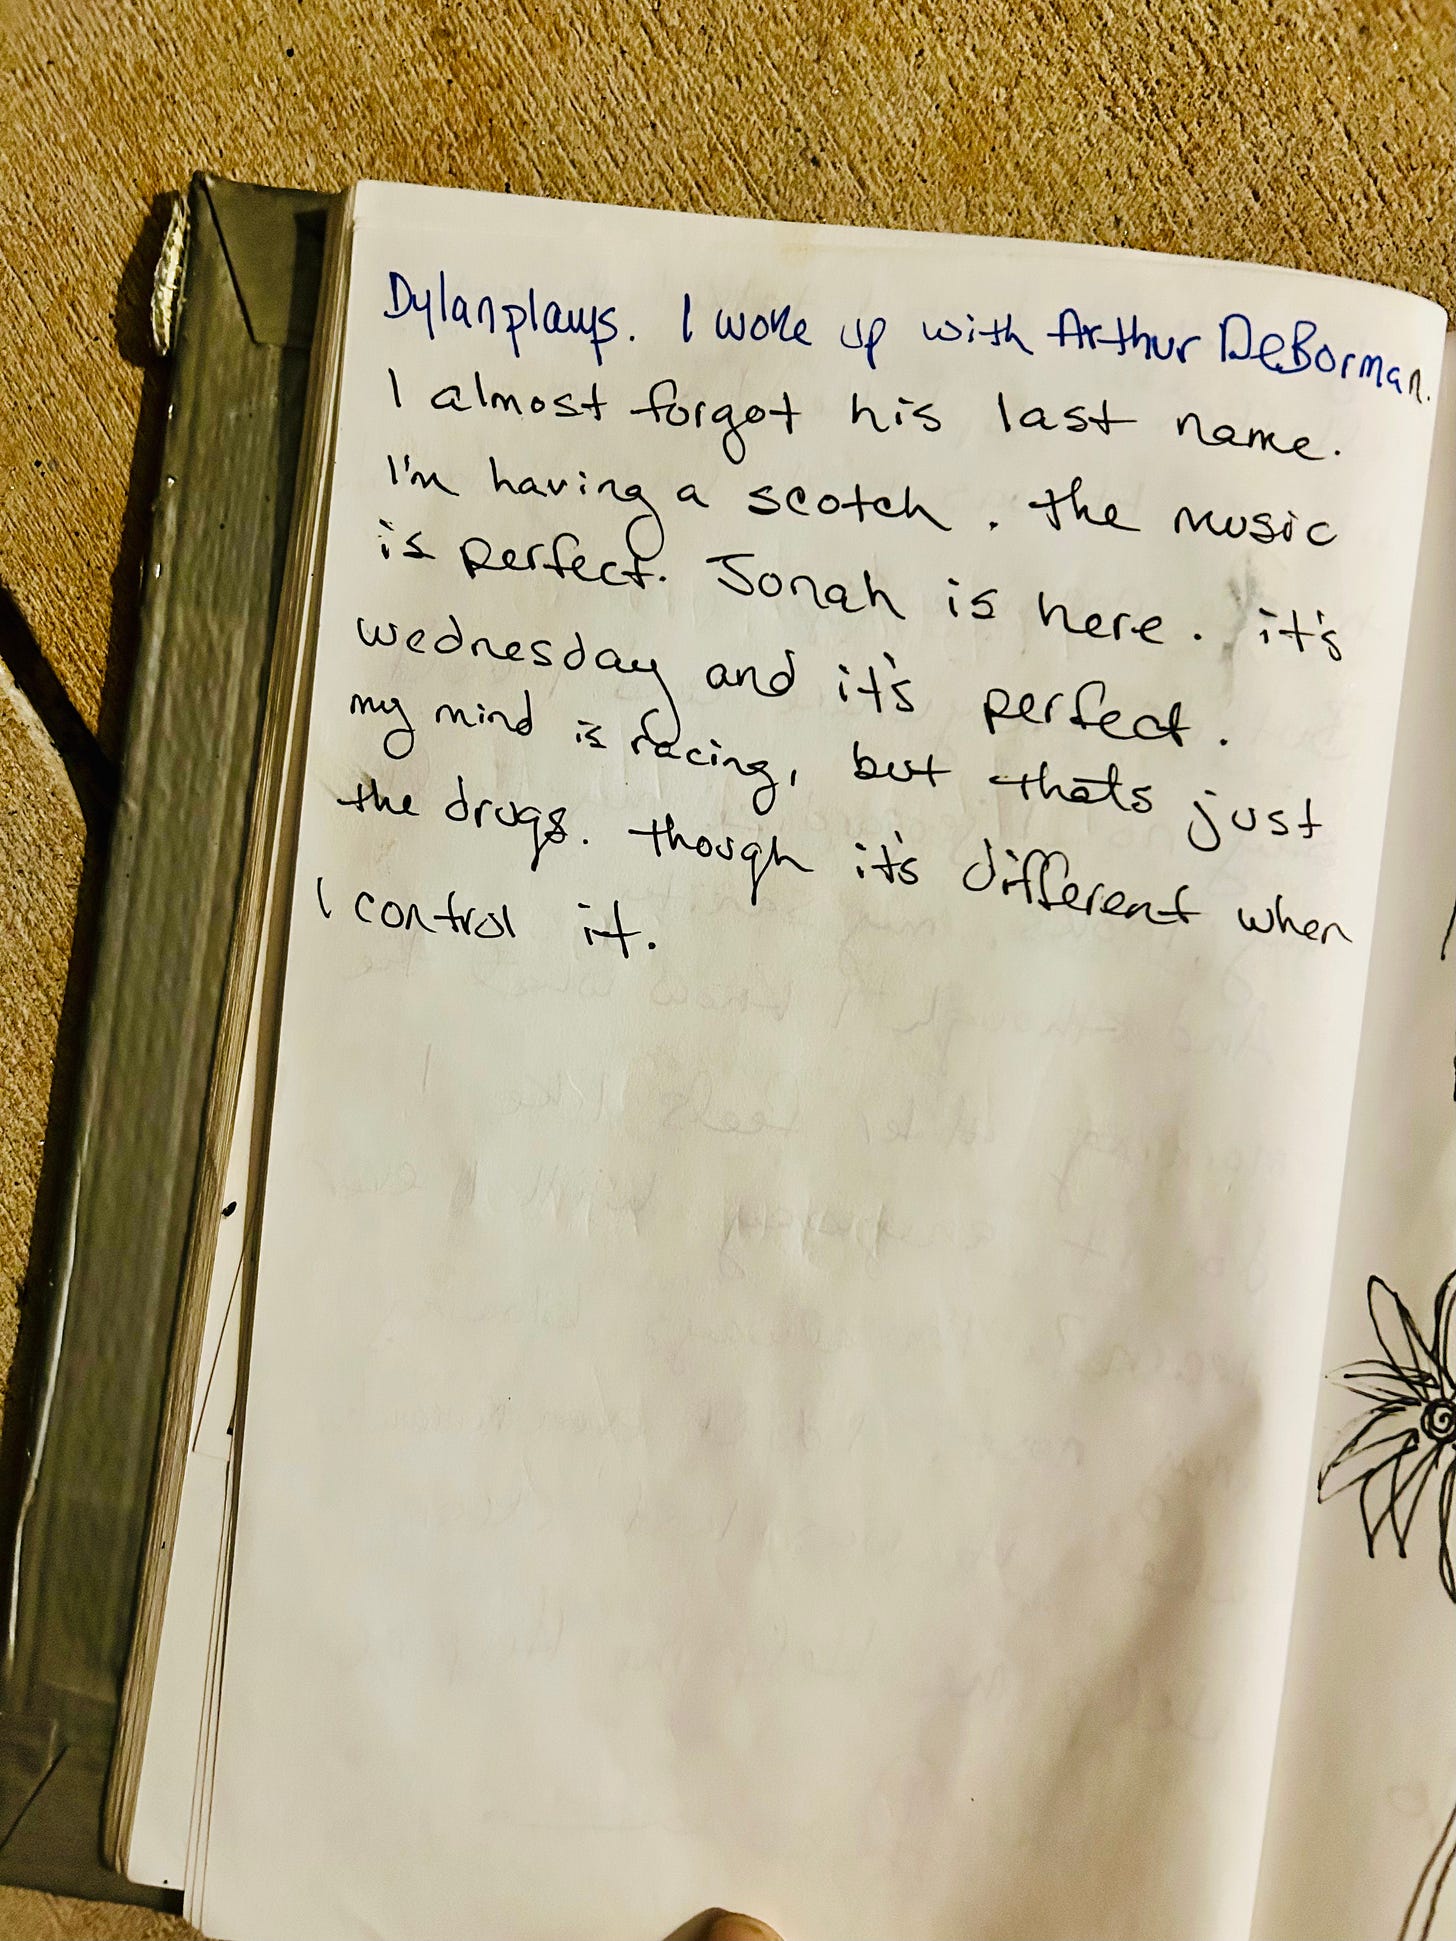 Dylan plays. I woke up with Arthur DeBorman.
I almost forgot his last name.
I'm having a scotch. the music
is perfect. Jonah is here. it's
wednesday and it's perfect.
my mind is racing, but thats just
the drugs. though it's different when
I control it.